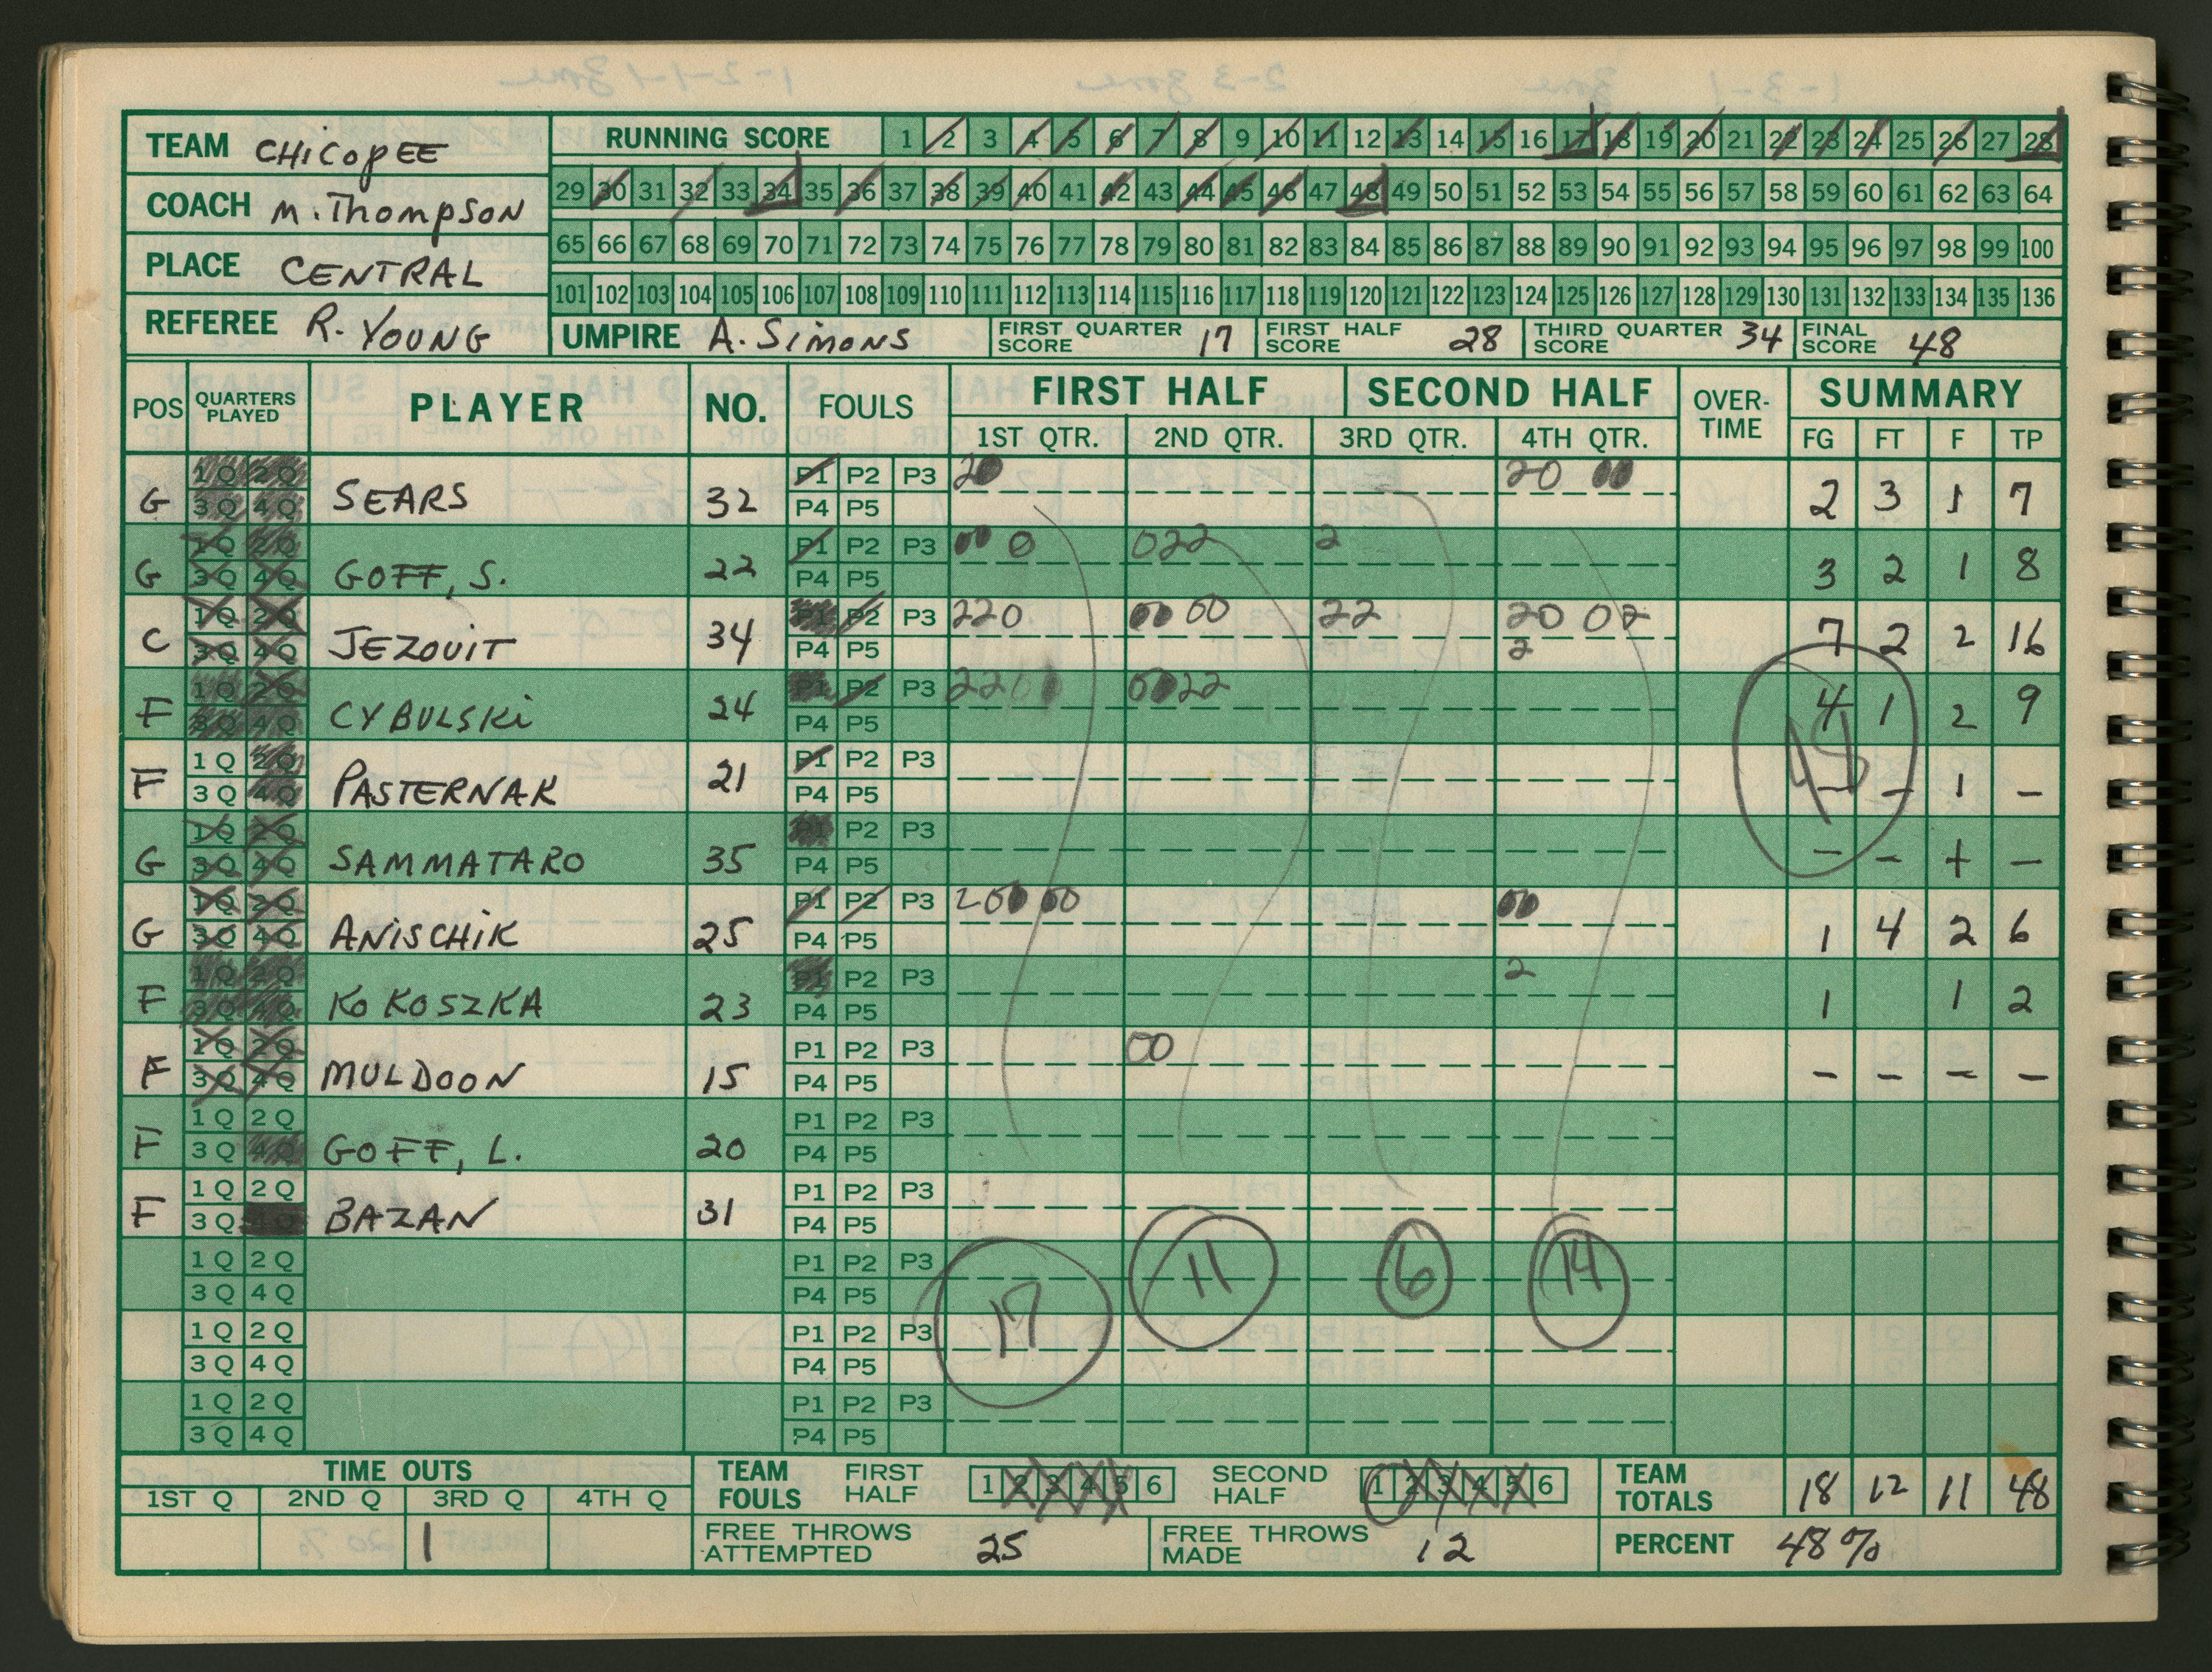 TEAM CHICOPEE
COACH M. THOMPSON
PLACE CENTRAL
REFEREE R. YOUNG
RUNNING SCORE 1 2 3 4 5 6 7 8 9 10 11 12 13 14 15 16 17 18 19 20 21 22 23 24 25 26 27 28
29 30 31 32 33 34 35 36 37 38 39 40 41 42 43 44 45 46 47 48 49 50 51 52 53 54 55 56 57 58 59 60 61 62 63 64
65 66 67 68 69 70 71 72 73 74 75 76 77 78 79 80 81 82 83 84 85 86 87 88 89 90 91 92 93 94 95 96 97 98 99 100
101 102 103 104 105 106 107 108 109 110 111 112 113 114 115 116 117 118 119 120 121 122 123 124 125 126 127 128 129 130 131 132 133 134 135 136
UMPIRE A. SIMONS FIRST QUARTER SCORE 17 FIRST HALF SCORE 28 THIRD QUARTER SCORE 34 FINAL SCORE 48
POS QUARTERS PLAYED PLAYER NO. FOULS FIRST HALF SECOND HALF OVER-TIME SUMMARY
1ST QTR. 2ND QTR. 3RD QTR. 4TH QTR. FG FT F TP
G 1Q 2Q 3Q 4Q SEARS 32 P1 P2 P3 P4 P5 20 20 00 2 3 1 7
G 1Q 2Q 3Q 4Q GOFF, S. 22 P1 P2 P3 P4 P5 00 0 022 2 3 2 1 8
C 1Q 2Q 3Q 4Q JEZOUIT 34 P1 P2 P3 P4 P5 220 00 00 22 20 02 2 7 2 2 16
F 1Q 2Q 3Q 4Q CYBULSKI 24 P1 P2 P3 P4 P5 2200 0022 4 1 2 9
F 1Q 2Q 3Q 4Q PASTERNAK 21 P1 P2 P3 P4 P5 – – 1 –
G 1Q 2Q 3Q 4Q SAMMATARO 35 P1 P2 P3 P4 P5 – – + –
G 1Q 2Q 3Q 4Q ANISCHIK 25 P1 P2 P3 P4 P5 200 00 00 1 4 2 6
F 1Q 2Q 3Q 4Q KOKOSZKA 23 P1 P2 P3 P4 P5 2 1 1 2
F 1Q 2Q 3Q 4Q MULDOON 15 P1 P2 P3 P4 P5 00 – – – –
F 1Q 2Q 3Q 4Q GOFF, L. 20 P1 P2 P3 P4 P5
F 1Q 2Q 3Q 4Q BAZAN 31 P1 P2 P3 P4 P5
1Q 2Q 3Q 4Q P1 P2 P3 P4 P5 11 6 14
1Q 2Q 3Q 4Q P1 P2 P3 P4 P5 17
1Q 2Q 3Q 4Q P1 P2 P3 P4 P5
TIME OUTS
1ST Q 2ND Q 3RD Q 4TH Q
1
TEAM FOULS FIRST HALF 1 2 3 4 5 6 SECOND HALF 1 2 3 4 5 6 TEAM TOTALS 18 12 11 48
FREE THROWS ATTEMPTED 25 FREE THROWS MADE 12 PERCENT 48%